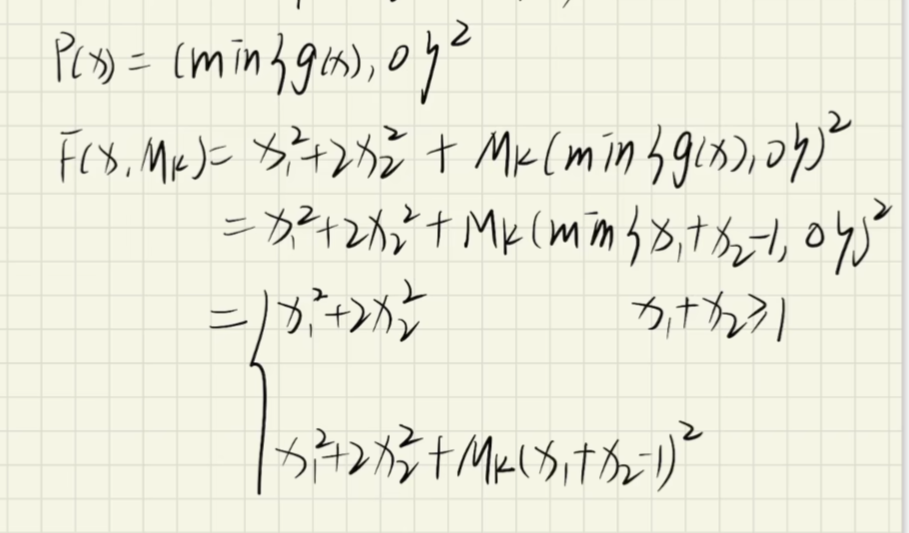 P(x) = (min{g(x), 0}²
F(x, Mk) = x₁²+2x₂² + Mk(min{g(x), 0})²
= x₁²+2x₂² + Mk(min{x₁+x₂-1, 0})²
= { x₁²+2x₂² x₁+x₂≥1
x₁²+2x₂²+Mk(x₁+x₂-1)²